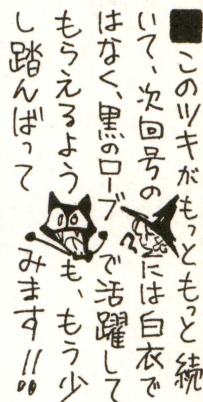 ■このツキがもっともっと続
いて、次回号のには白衣で
はなく、黒のローブで活躍して
もらえるようも、もう少
し踏んばってみます!!